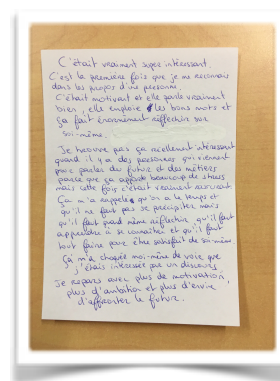 C'était vraiment super intéressant.
C'est la première fois que je me reconnais
dans les propos d'une personne.
C'était motivant et elle parle vraiment
bien, elle emploie les bons mots et
ça fait énormément réfléchir sur
soi-même.
Je trouve pas ça excellement intéressant
quand il y a des personnes qui viennent
pour parler du futur et des métiers
parce que ça apporte beaucoup de stress
mais cette fois c'était vraiment
Ça m'a rappelé qu'on a le temps et
qu'il ne faut pas se précipiter mais
qu'il faut quand même réfléchir, qu'il faut
apprendre à se connaître et qu'il faut
tout faire pour être satisfait de soi-même.
Ça m'a choquée moi-même de voir que
j'étais intéressée par un discours.
Je repars avec plus de motivation,
plus d'ambition et plus d'envie
d'affronter le futur.